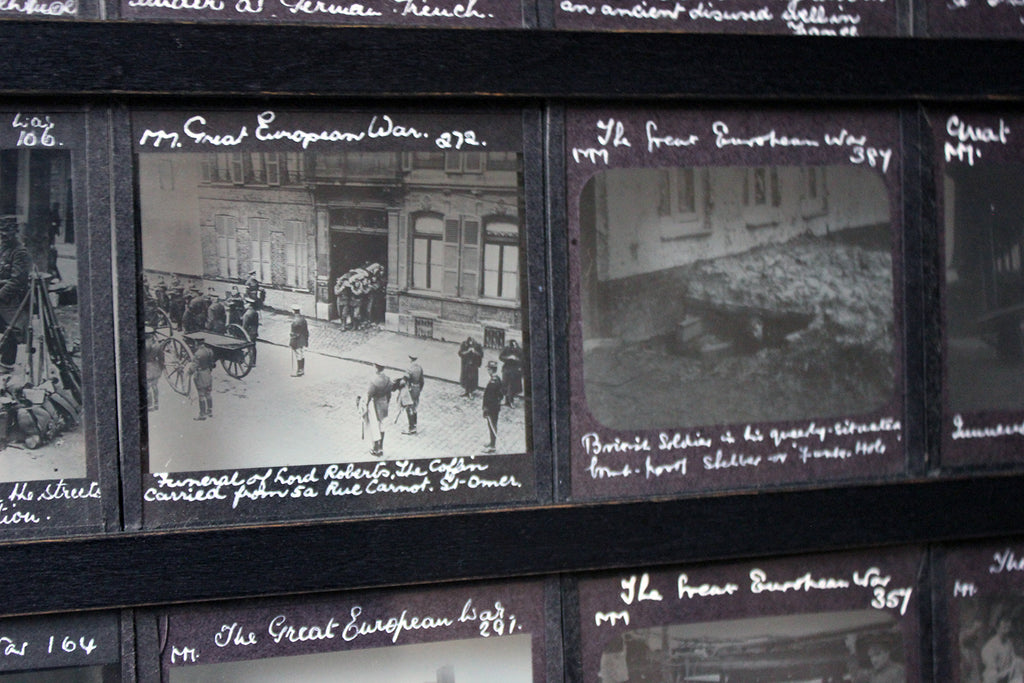 German Trench.
an ancient disused well in
France
War
106.
MM. Great European War. 272.
The Great European War
MM 387
Great
M.
Funeral of Lord Roberts, The Coffin
carried from 5a Rue Carnot. St-Omer.
British Soldier in his
Shelter or Funk-Hole
the streets
War 164
MM. The Great European War.
291.
The Great European War
MM 357
The
M.